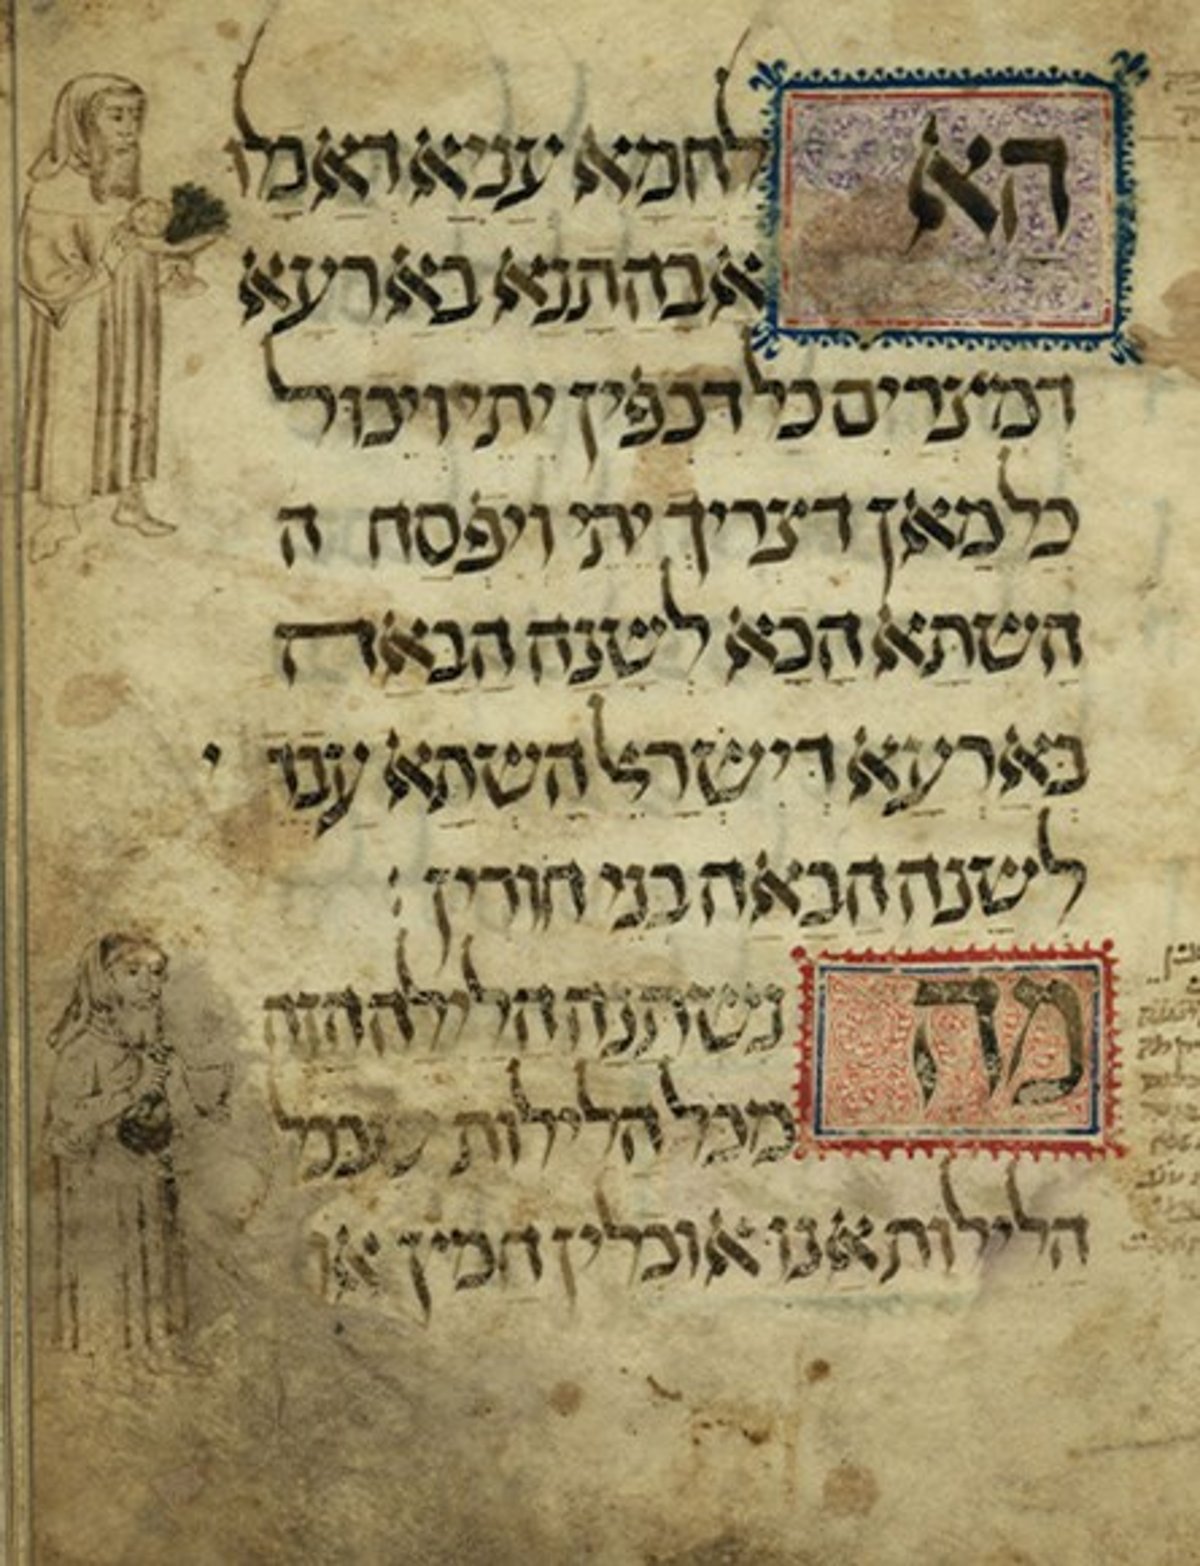 הא לחמא עניא דאכלו
אבהתנא בארעא
דמצרים כל דכפין יתי ויכול
כל מאן דצריך יתי ויפסח ה
השתא הכא לשנה הבאה
בארעא דישרל השתא עבד י
לשנה הבאה בני חורין:
מה נשתנה הלילה הזה
מכל הלילות שבכל
הלילות אנו אוכלין חמין או